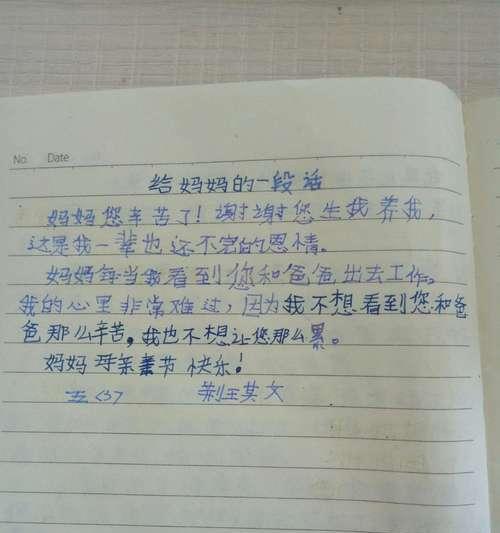 No.    Date
给妈妈的一段话
妈妈您辛苦了！谢谢您生我养我，
这是我一辈也还不完的恩情。
妈妈每当我看到您和爸爸出去工作。
我的心里非常难过，因为我不想看到您和爸
爸那么辛苦，我也不想让您那么累。
妈妈 母亲节 快乐！
五<3>    荆玉其文